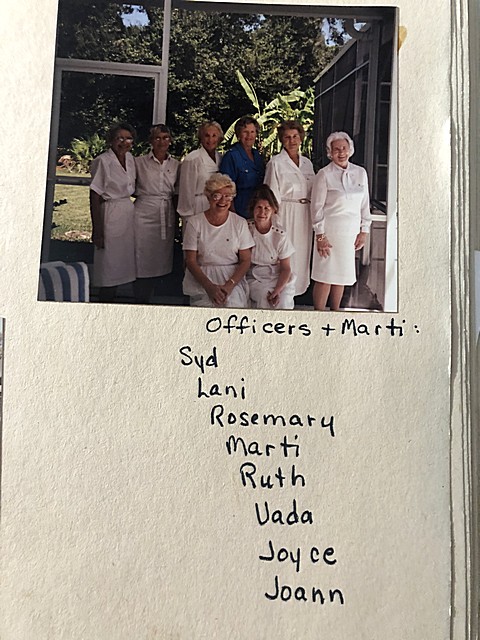 Officers + Marti:
Syd
Lani
Rosemary
Marti
Ruth
Vada
Joyce
Joann